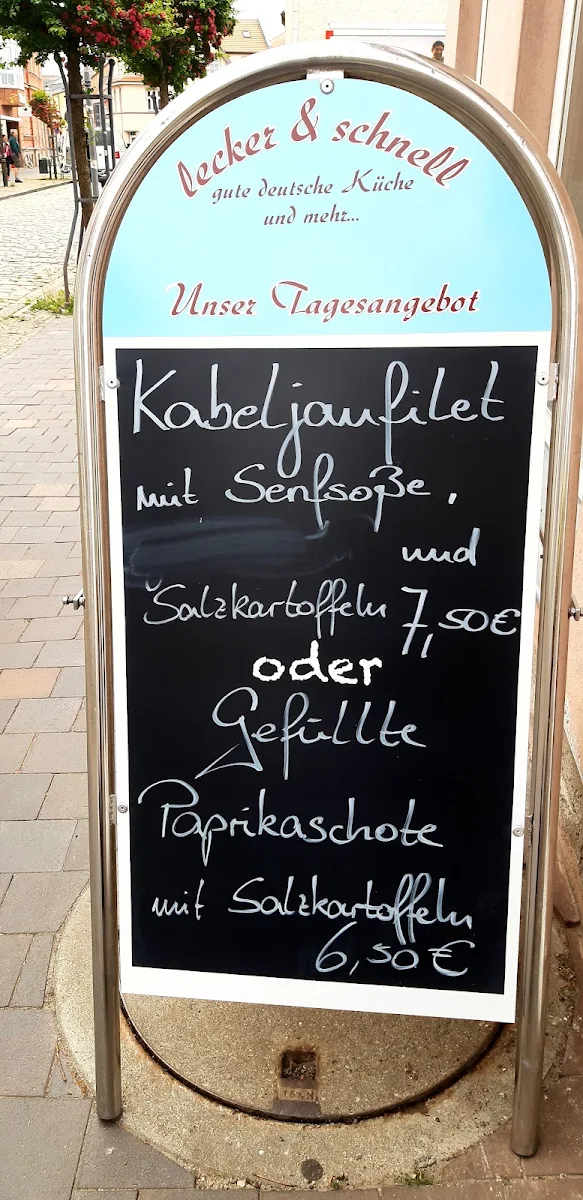 lecker & schnell
gute deutsche Küche
und mehr...
Unser Tagesangebot
Kabeljaufilet
mit Senfsoße,
und
Salzkartoffeln 7,50€
oder
Gefüllte
Paprikaschote
mit Salzkartoffeln
6,50€